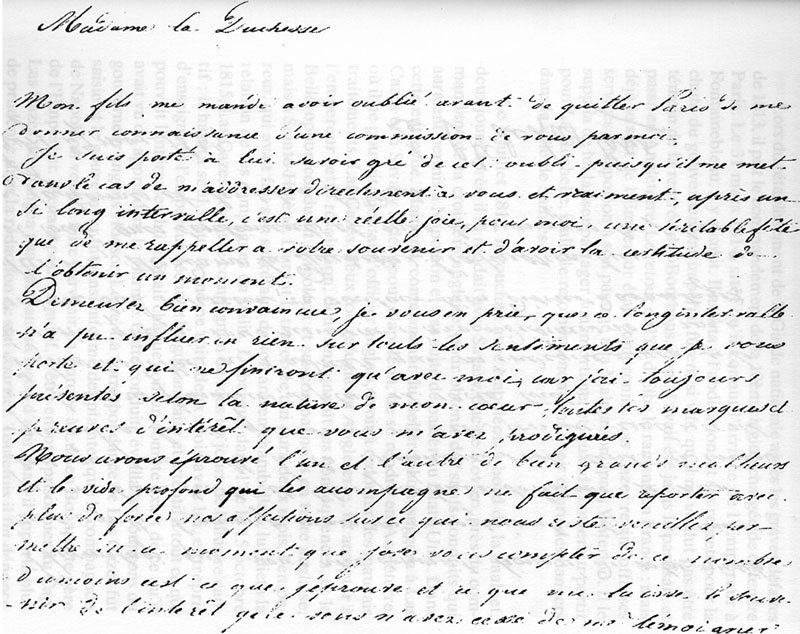 Madame la Duchesse
Mon fils me mande avoir oublié avant de quitter Paris de me
donner connaissance d'une commission de vous par moi.
Je suis porté à lui savoir gré de cet oubli puisqu'il me met
dans le cas de m'addresser directement a vous et vraiment, après un
si long intervalle, c'est une réelle joie, pour moi, une véritable fête
que de me rappeller a votre souvenir et d'avoir la certitude de
l'obtenir un moment.
Demeurez bien convaincue, je vous en prie, que ce long intervalle
n'a pu influer en rien sur touts les sentiments que je vous
porte et qui ne finiront qu'avec moi, car j'ai toujours
présentés selon la nature de mon cœur, toutes les marques et
preuves d'intérêt que vous m'avez prodigués.
Nous avons éprouvé l'un et l'autre de bien grands malheurs
et le vide profond qui les acompagne ne fait que reporter avec
plus de force nos affections sur ce qui nous reste veuillez per-
mettre en ce moment que j'ose vous compter de ce nombre
du moins c'est ce que j'éprouve et ce que me laisse le souve-
nir de l'intérêt que vous n'avez cessé de me témoigner